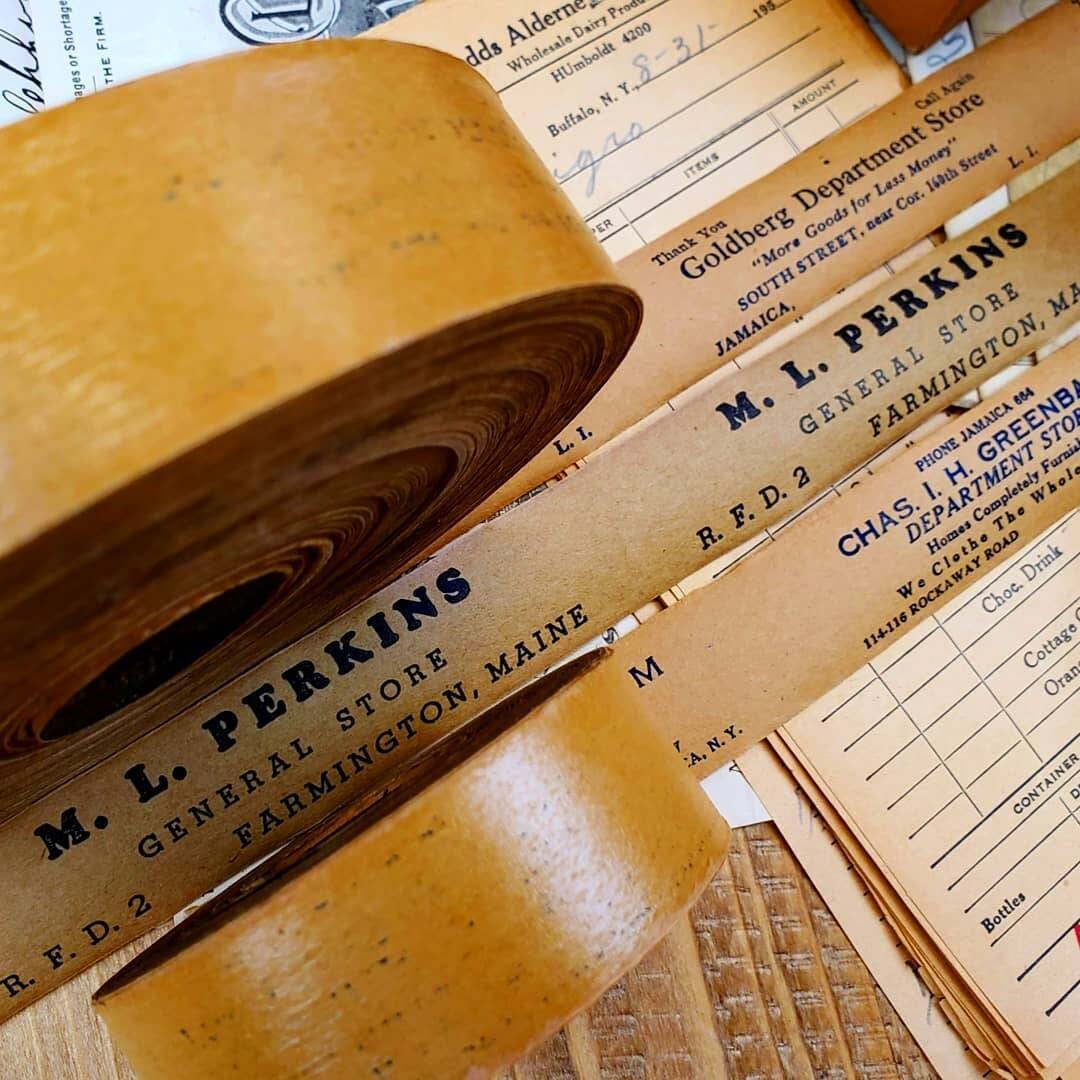 ages or Shortage
THE FIRM.
dds Alderne
Wholesale Dairy Produ
HUmboldt 4200
195
Buffalo, N. Y., 8-31-
AMOUNT
ITEMS
PER
Call Again
Thank You
Goldberg Department Store
"More Goods for Less Money"
SOUTH STREET, near Cor. 160th Street
JAMAICA,
L. I.
L. I.
M. L. PERKINS
GENERAL STORE
FARMINGTON, MA
R. F. D. 2
M. L. PERKINS
GENERAL STORE
FARMINGTON, MAINE
R. F. D. 2
PHONE JAMAICA 664
CHAS. I. H. GREENBA
DEPARTMENT STOR
Homes Completely Furnish
We Clothe The Whole
114-116 ROCKAWAY ROAD
M
CA, N.Y.
Choc. Drink
Cottage
Oran
CONTAINER
Bottles